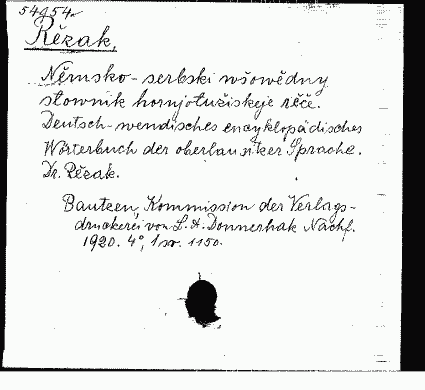 54954.
Rězak,
Němsko-serbski wšowědny
słownik hornjołužiskeje rěče.
Deutsch-wendisches encyklopädisches
Wörterbuch der oberlausitzer Sprache.
Dr. Rězak.
Bautzen, Kommission der Verlags-
druckerei von L. A. Donnerhak Nachf.
1920. 4°, 1150.